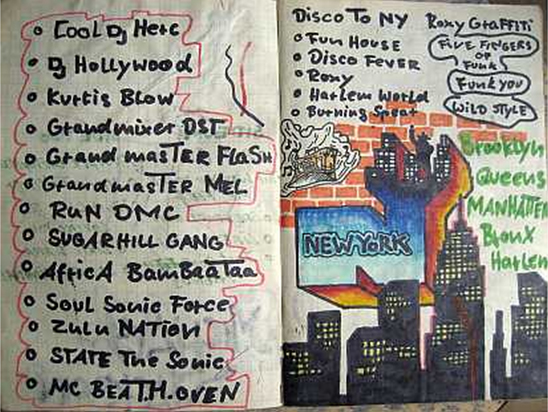 Cool Dj Herc
Dj Hollywood
Kurtis Blow
Grandmixer DST
Grand masTer FlaSH
GrandmasTER MEL
RuN DMC
SUGARHILL GANG
AfricA BamBaaTaa
Soul Sonic Force
Zulu NATion
STATE The Sonic
MC BEATH.OVEN
Disco To NY
Fun House
Disco FEVER
Roxy
Harlem World
Burning Spear
Roxy GraFFiTi
FiVE FiNGERS
OF
FUNK
FunK you
WiLD STYLE
NEWYORK
Brooklyn
Queens
MANHATTEN
Bronx
Harlem